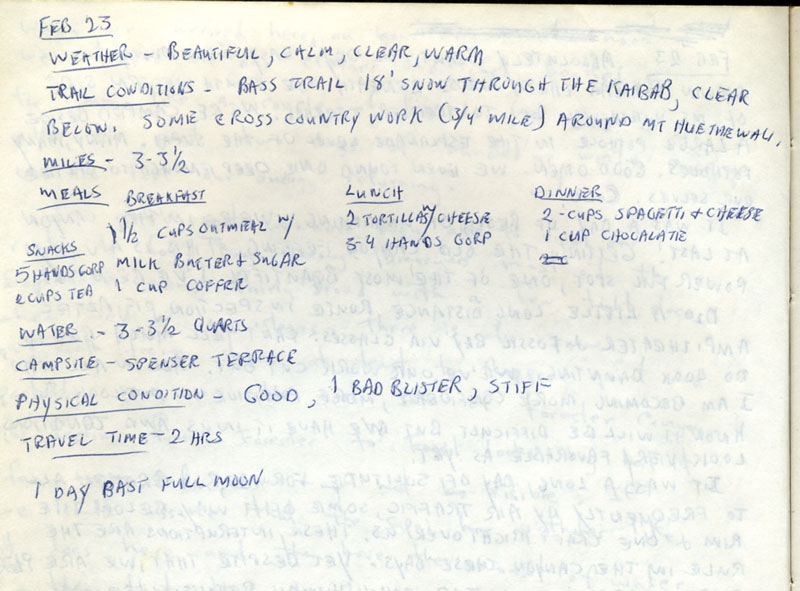 FEB 23
WEATHER - BEAUTIFUL, CALM, CLEAR, WARM
TRAIL CONDITIONS - BASS TRAIL 18" SNOW THROUGH THE KAIBAB, CLEAR
BELOW. SOME CROSS COUNTRY WORK (3/4 MILE) AROUND MT HUETHEWALI,
MILES - 3-3½
MEALS BREAKFAST LUNCH DINNER
1½ CUPS OATMEAL W/ 2 TORTILLAS W/ CHEESE 2-CUPS SPAGETTI & CHEESE
SNACKS 3-4 HANDS GORP 1 CUP CHOCALATE
5 HANDS GORP MILK BUTTER & SUGAR
2 CUPS TEA 1 CUP COFFEE
WATER - 3-3½ QUARTS
CAMPSITE - SPENSER TERRACE
PHYSICAL CONDITION - GOOD, 1 BAD BLISTER, STIFF
TRAVEL TIME - 2 HRS
1 DAY PAST FULL MOON